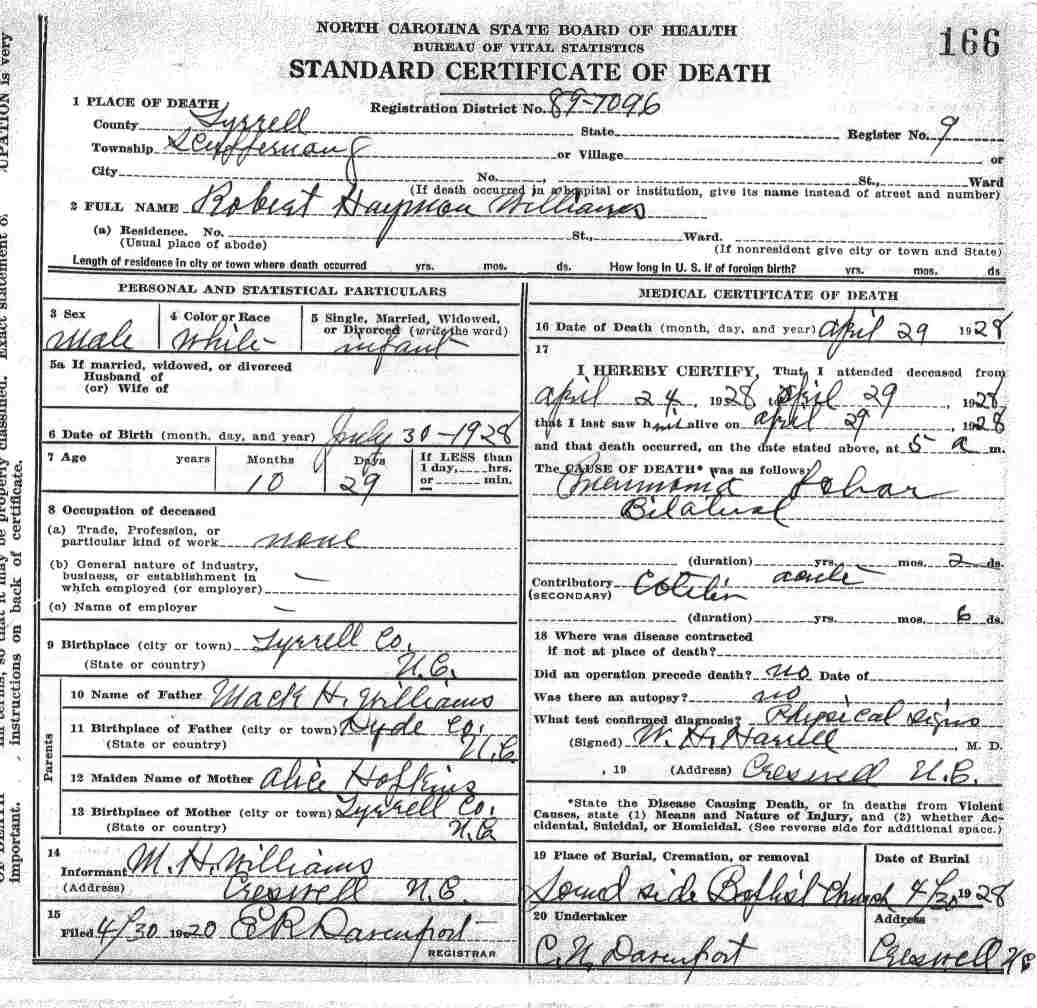 NORTH CAROLINA STATE BOARD OF HEALTH
BUREAU OF VITAL STATISTICS
STANDARD CERTIFICATE OF DEATH
166
1 PLACE OF DEATH
Registration District No. 89-7096
County Tyrrell State Register No. 9
Township Scuppernong or Village or
City No. , St., Ward
(If death occurred in a hospital or institution, give its name instead of street and number)
2 FULL NAME Robert Haymon Williams
(a) Residence. No. St., Ward.
(Usual place of abode) (If nonresident give city or town and State)
Length of residence in city or town where death occurred yrs. mos. ds. How long in U. S. if of foreign birth? yrs. mos. ds
PERSONAL AND STATISTICAL PARTICULARS
3 Sex 4 Color or Race 5 Single, Married, Widowed,
or Divorced (write the word)
Male White infant
5a If married, widowed, or divorced
Husband of
(or) Wife of
6 Date of Birth (month, day, and year) July 30-1928
7 Age years Months Days If LESS than
1 day, hrs.
or min.
10 29
8 Occupation of deceased
(a) Trade, Profession, or
particular kind of work none
(b) General nature of industry,
business, or establishment in
which employed (or employer) —
(c) Name of employer —
9 Birthplace (city or town) Tyrrell Co.
(State or country) N.C.
Parents
10 Name of Father Mack H. Williams
11 Birthplace of Father (city or town) Hyde Co.
(State or country) N.C
12 Maiden Name of Mother Alice Hopkins
13 Birthplace of Mother (city or town) Tyrrell Co.
(State or country) N.C
14
Informant M. H. Williams
(Address) Creswell N.C.
15
Filed 4/30 1920 E R Davenport
REGISTRAR
MEDICAL CERTIFICATE OF DEATH
16 Date of Death (month, day, and year) april 29 1928
17
I HEREBY CERTIFY, That I attended deceased from
april 24, 1928, april 29, 1928
that I last saw him alive on april 29, 1928
and that death occurred, on the date stated above, at 5 a m.
The CAUSE OF DEATH* was as follows:
Pneumonia Lobar
Bilateral
(duration) yrs. mos. 2 ds.
Contributory acute
(SECONDARY)
(duration) yrs. mos. 6 ds.
18 Where was disease contracted
if not at place of death?
Did an operation precede death? no Date of
Was there an autopsy? no
What test confirmed diagnosis? Physical signs
(Signed) W. H. Harrell, M. D.
, 19 (Address) Creswell N.C.
*State the Disease Causing Death, or in deaths from Violent
Causes, state (1) Means and Nature of Injury, and (2) whether Ac-
cidental, Suicidal, or Homicidal. (See reverse side for additional space.)
19 Place of Burial, Cremation, or removal Date of Burial
Sound side Baptist Church 4/30 1928
20 Undertaker Address
C. N. Davenport Creswell N C
UPATION is very
Exact statement o
classified.
so that it may be properly
instructions on back of certificate.
OF DEATH
important.